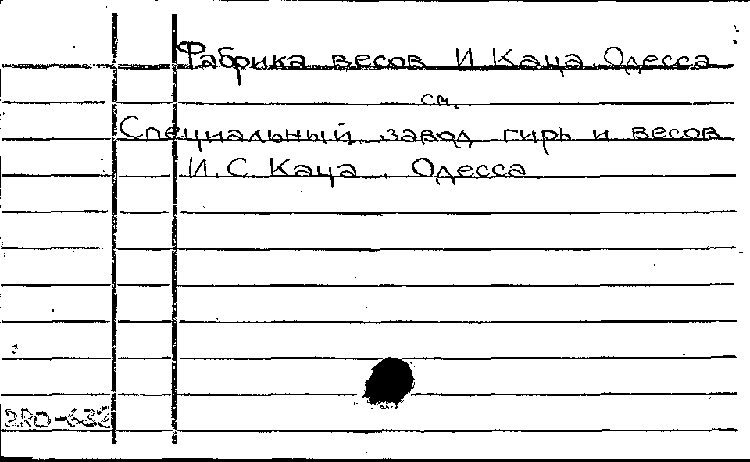 Фабрика весов И Каца Одесса
см.
Специальный завод гирь и весов
И.С. Каца. Одесса